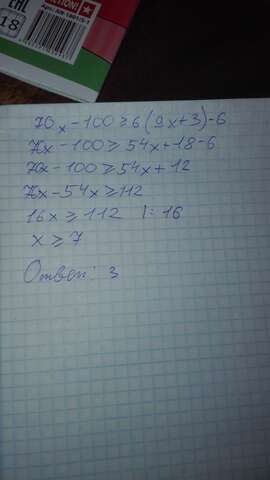 EAC
18
70x - 100 ≥ 6(9x + 3) - 6
70x - 100 ≥ 54x + 18 - 6
70x - 100 ≥ 54x + 12
70x - 54x ≥ 112
16x ≥ 112 |: 16
x ≥ 7
Ответ: 3